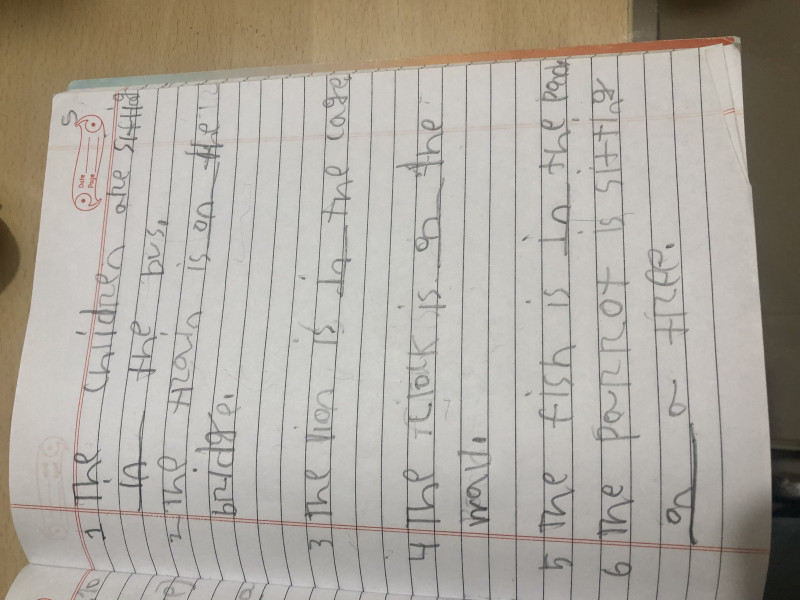 5
Date
Page
1 The children are sitting
in the bus.
2 The train is on the
bridge.
3 The lion is in the cage
4 The clock is on the
wall.
5 The fish is in the pond
6 The parrot is sitting
on a tree.